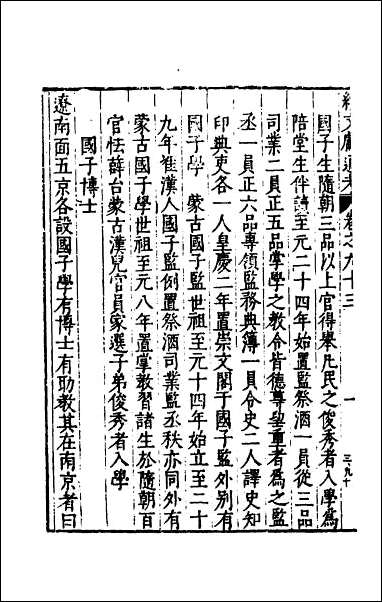 續文獻通考
卷之九十三
一
三九十
國子生隨朝三品以上官得舉凡民之俊秀者入學爲
陪堂生伴讀至元二十四年始置監祭酒一員從三品
司業二員正五品掌學之教令皆德尊望重者爲之監
丞一員正六品專領監務典簿一員令史二人譯史知
印典吏各一人皇慶二年置崇文閣于國子監外别有
國子學　蒙古國子監世祖至元十四年始立至二十
九年准漢人國子監例置祭酒司業監丞秩亦同外有
蒙古國子學世祖至元八年置掌教習諸生於隨朝百
官怯薛台蒙古漢兒官員家選子弟俊秀者入學
國子博士
遼南面五京各設國子學有博士有助教其在南京者曰